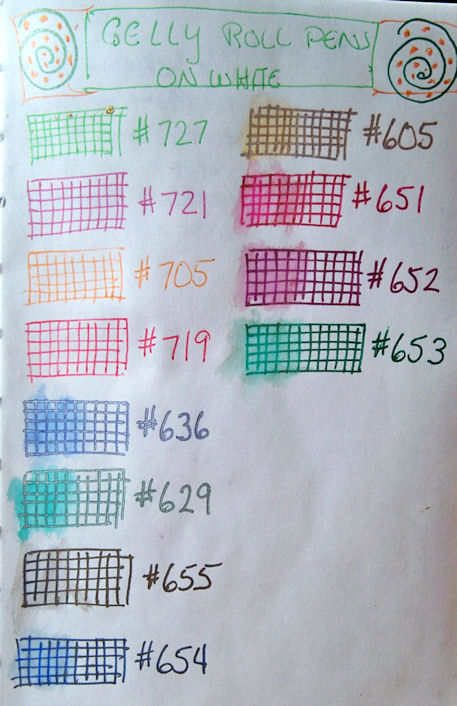 GELLY ROLL PENS
ON WHITE
#727
#721
#705
#719
#636
#629
#655
#654
#605
#651
#652
#653